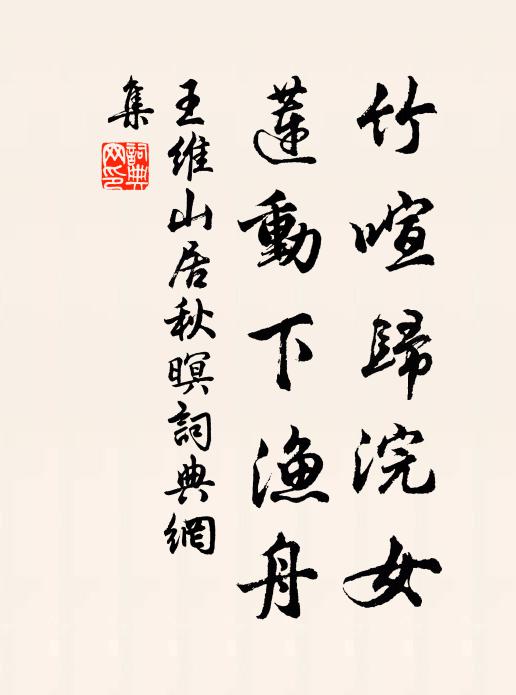 竹喧歸浣女
蓮動下漁舟
王維山居秋暝詞典網
集
詞典網印